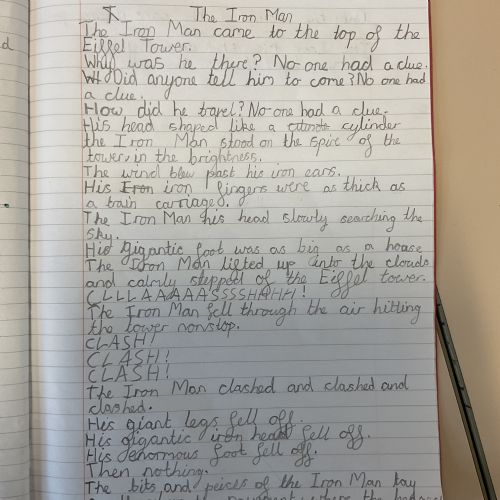 The Iron Man
The Iron Man came to the top of the
Eiffel Tower.
Why was he there? No one had a clue.
Did anyone tell him to come? No one had
a clue.
How did he travel? No one had a clue.
His head shaped like a cylinder
the Iron Man stood on the spire of the
tower, in the brightness.
The wind blew past his iron ears.
His iron fingers were as thick as
a train carriages.
The Iron Man his head slowly searching the
sky.
His gigantic foot was as big as a house
The Iron Man lifted up into the clouds
and calmly stepped of the Eiffel tower.
CLLLAAAAASSSSHHHH!
The Iron Man fell through the air hitting
the tower nonstop.
CLASH!
CLASH!
CLASH!
The Iron Man clashed and clashed and
clashed.
His giant legs fell off.
His gigantic iron head fell off.
His enormous foot fell off.
Then nothing.
The bits and peices of the Iron Man lay